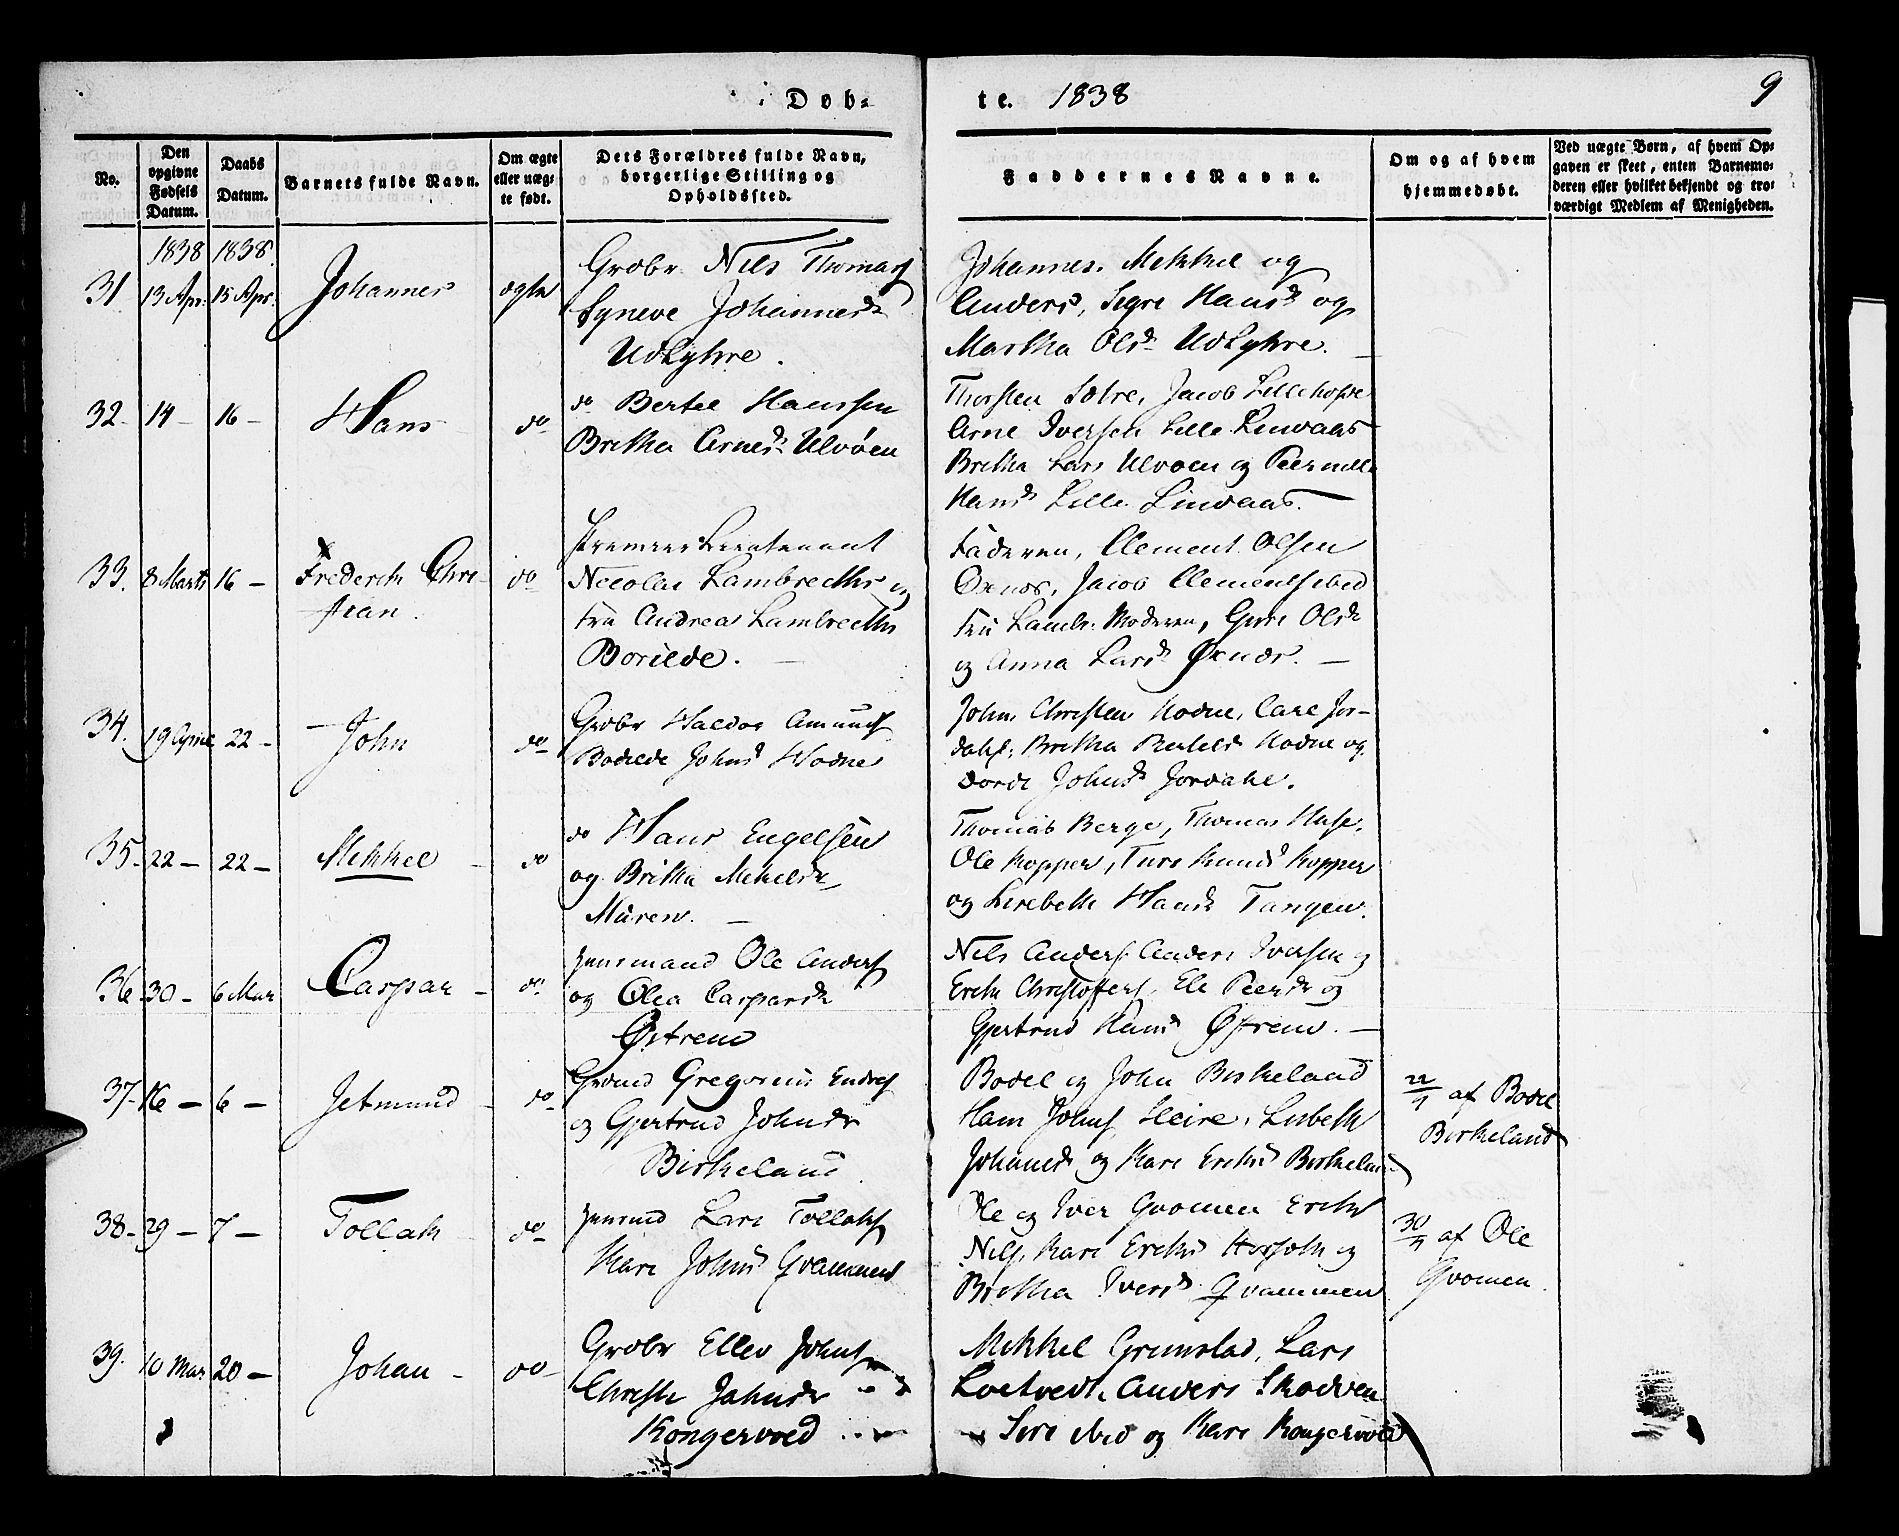 Døb-
te. 1838
9
No.
Den opgivne Fødsels Datum.
Daabs Datum.
Barnets fulde Navn.
Om ægte eller uæg-te født.
Dets Forældres fulde Navn, borgerlige Stilling og Opholdssted.
Faddernes Navne.
Om og af hvem hjemmedøbt.
Ved uægte Børn, af hvem Op-
gaven er skeet, enten Barnemo-
deren eller hvilket bekjendt og tro-
værdigt Medlem af Menigheden.
1838 1838.
31 13 Apr. 15 Apr. Johannes ægte
Grdbr Nils Thomas
Syneve Johannesd
Udlyhre.
Johannes. Mekkel og
Anders, Sigri Hansd og
Martha Olsd Udlyhre.
32. 14 - 16 - Hans do
do Bertel Hanssen
Britha Arnesd Ulvöen
Thorsten Sotre, Jacob Lillehopre
Arne Iversen Lille Linvaas
Britha Lars Ulvoen og Peernille
Hansd Lille Linvaas.
33. 8 Marts 16 - Frederik Chri-
stian. do
Premier Lieutenant
Nicolai Lambrechts og
Fru Andrea Lambrechts
Borilde.
Faderen, Clement Olsen
Oxnæs, Jacob Clements ibid
Fru Lamb. Moderen, Guri Olsd
og Anna Larsd Øxnæs.
34. 19 April 22 - John do
Grdbr Haldor Amunds
Bodilde Johnsd Hodne
John, Christen Hodne, Carl Jor-
dahl, Britha Bertelsd Hodne og
Dordi Johnsd Jordahl.
35. 22 - 22 - Mekkel - do
do Hans Engelsen
og Britha Mekelsd
Muren.
Thomas Berge, Thomas Huse,
Ole Kopper, Turi Knudsd Kopper
og Lisebeth Hansd Tangen.
36 30 - 6 Mai Caspar - do
Huusmand Ole Anders
og Olea Caspersd
Østrem
Nils Anders Anders Iversen og
Erik Christoffers, Eli Peersd og
Gjertrud Hansd Østrem.
37 16 - 6 - Jetmund - do
Grdmd Gregorius Endres
og Gjertrud Johnsd
Birkeland
Bodel og John Birkeland
Hans Johns Steire, Lisbeth
Johansd og Kari Eriksd Birkeland
22/4 af Bodel
Birkeland
38 - 29 - 7 - Tollak do
Huusmd Lars Tollaks
Kari Johnsd Qvammen
Ole og Iver Qvamen Erik
Nils, Kari Eriksd og
Britha Iversd Qvammen
30/4 af Ole
Qvamen.
39. 10 Mai 20 - Johan - do
Grdbr Ellev Johns
Christi Johnsd
Kongervold
Mekkel Grimstad, Lars
Loetvedt, Anders Skodven
Siri ibid og Kari Kongervold